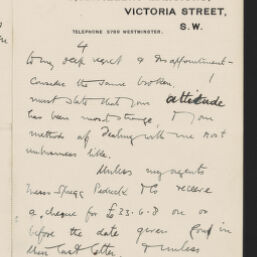 VICTORIA STREET,
S.W.
TELEPHONE 5780 WESTMINSTER.
4
to my deep regret & disappointment—
Consider the same broken. I
must state that your attitude
has been most strange, & your
methods of Dealing with me most
unbusiness like.
Unless my agents
Messrs Spragg Pedrick & Co receive
a cheque for £23.6.8 on or
before the date given in
their last letter, & unless